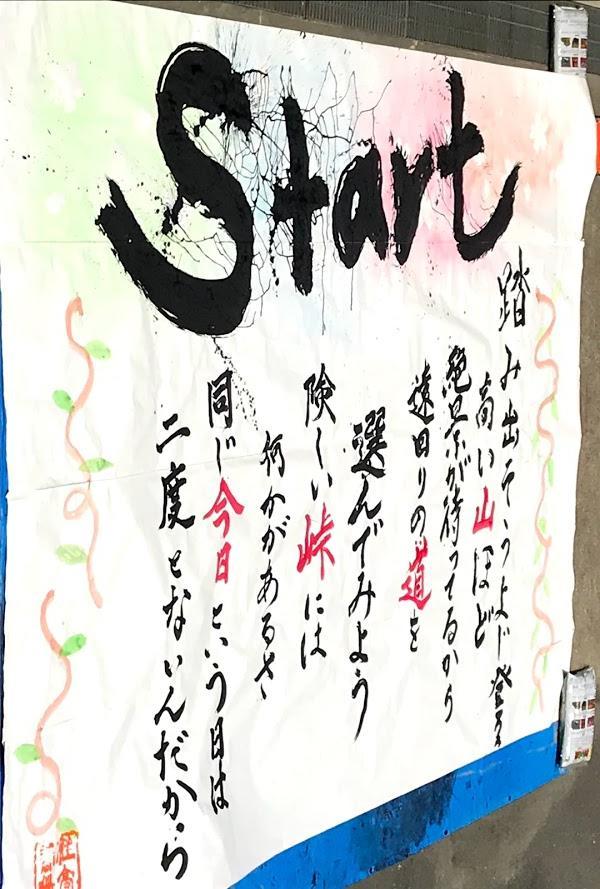 Start
踏み出そうよよじ登る
高い山ほど
絶景が待ってるから
遠回りの道を
選んでみよう
険しい峠には
何かがあるさ
同じ今日という日は
二度とないんだから